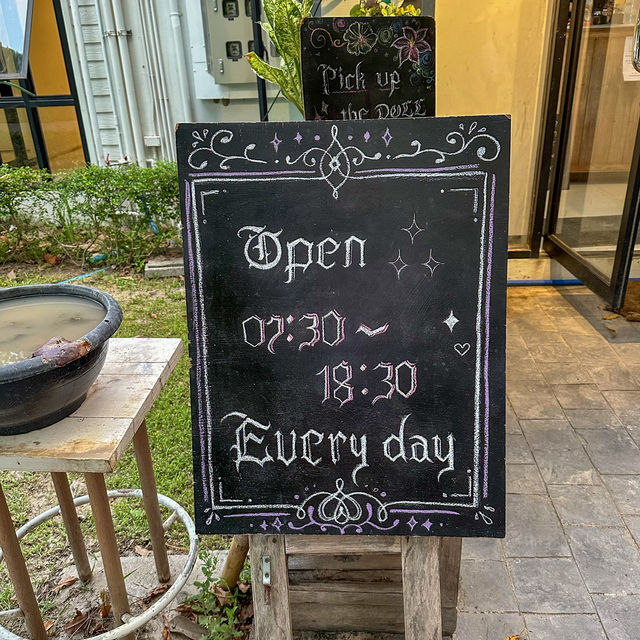 Pick up
the DOLL
Open
07:30 ~
18:30
Every day